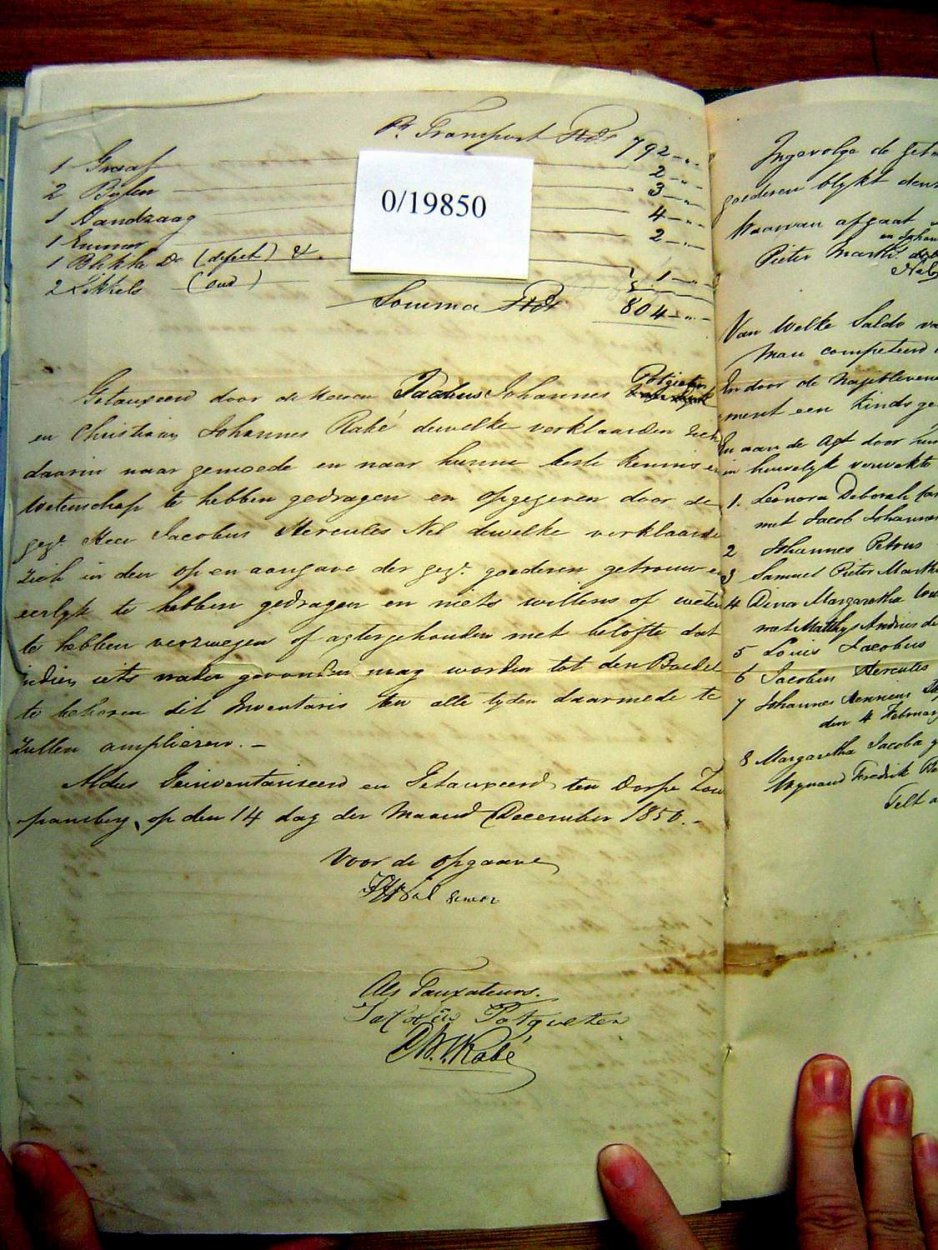 Pr Transport Rds 792 - "
1 Graaf 2 - "
2 Bylen 3 - "
1 Handzaag 4 - "
1 Emmer 2 - "
1 Blikke Do (defect) &.
2 Sikkels (oud) 1 - "
Somma Rds 804 - "
0/19850
Getauxeerd door de Heeren Jacobus Johannes Potgieter
en Christiaan Johannes Rabé dewelke verklaarden zich
daarin naar gemoede en naar hunne beste kennis en
wetenschap te hebben gedragen en opgegeven door de
gezr. Heer Jacobus Hercules Nel dewelke verklaarde
zich in den op en aangave der gezr. goederen getrouw en
eerlyk te hebben gedragen en niets willens of weten
te hebben verzwegen of agtergehouden met belofte dat
indien iets nader gevonden mag worden tot den Boedel
te behoren dit Inventaris ten alle tyden daarmede te
zullen ampliëren. -
Aldus Geïnventariseerd en Getauxeerd ten Dorpe Zou
pansberg, op den 14 dag der Maand December 1850. -
Voor de opgaave
Als Tauxateurs.
Potgieter
Rabé
Ingevolge de Geta
goederen blykt den
Waarvan afgaat
Pieter Marth
Van Welke Saldo va
Man competeerd
En door de Nageblevene
ment een Kinds ge
en huwelyk verwekte
1. Leonora Deborah
met Jacob Johannes
2 Johannes Petrus
3 Samuel Pieter Marth
4 Dina Margaretha
met Matthys Andries de
5 Louis Jacobus
6 Jacobus Hercules
7 Johannes Hennine
den 4 Februar
8 Margaretha Jacoba
Wynand Fredrik
Telt